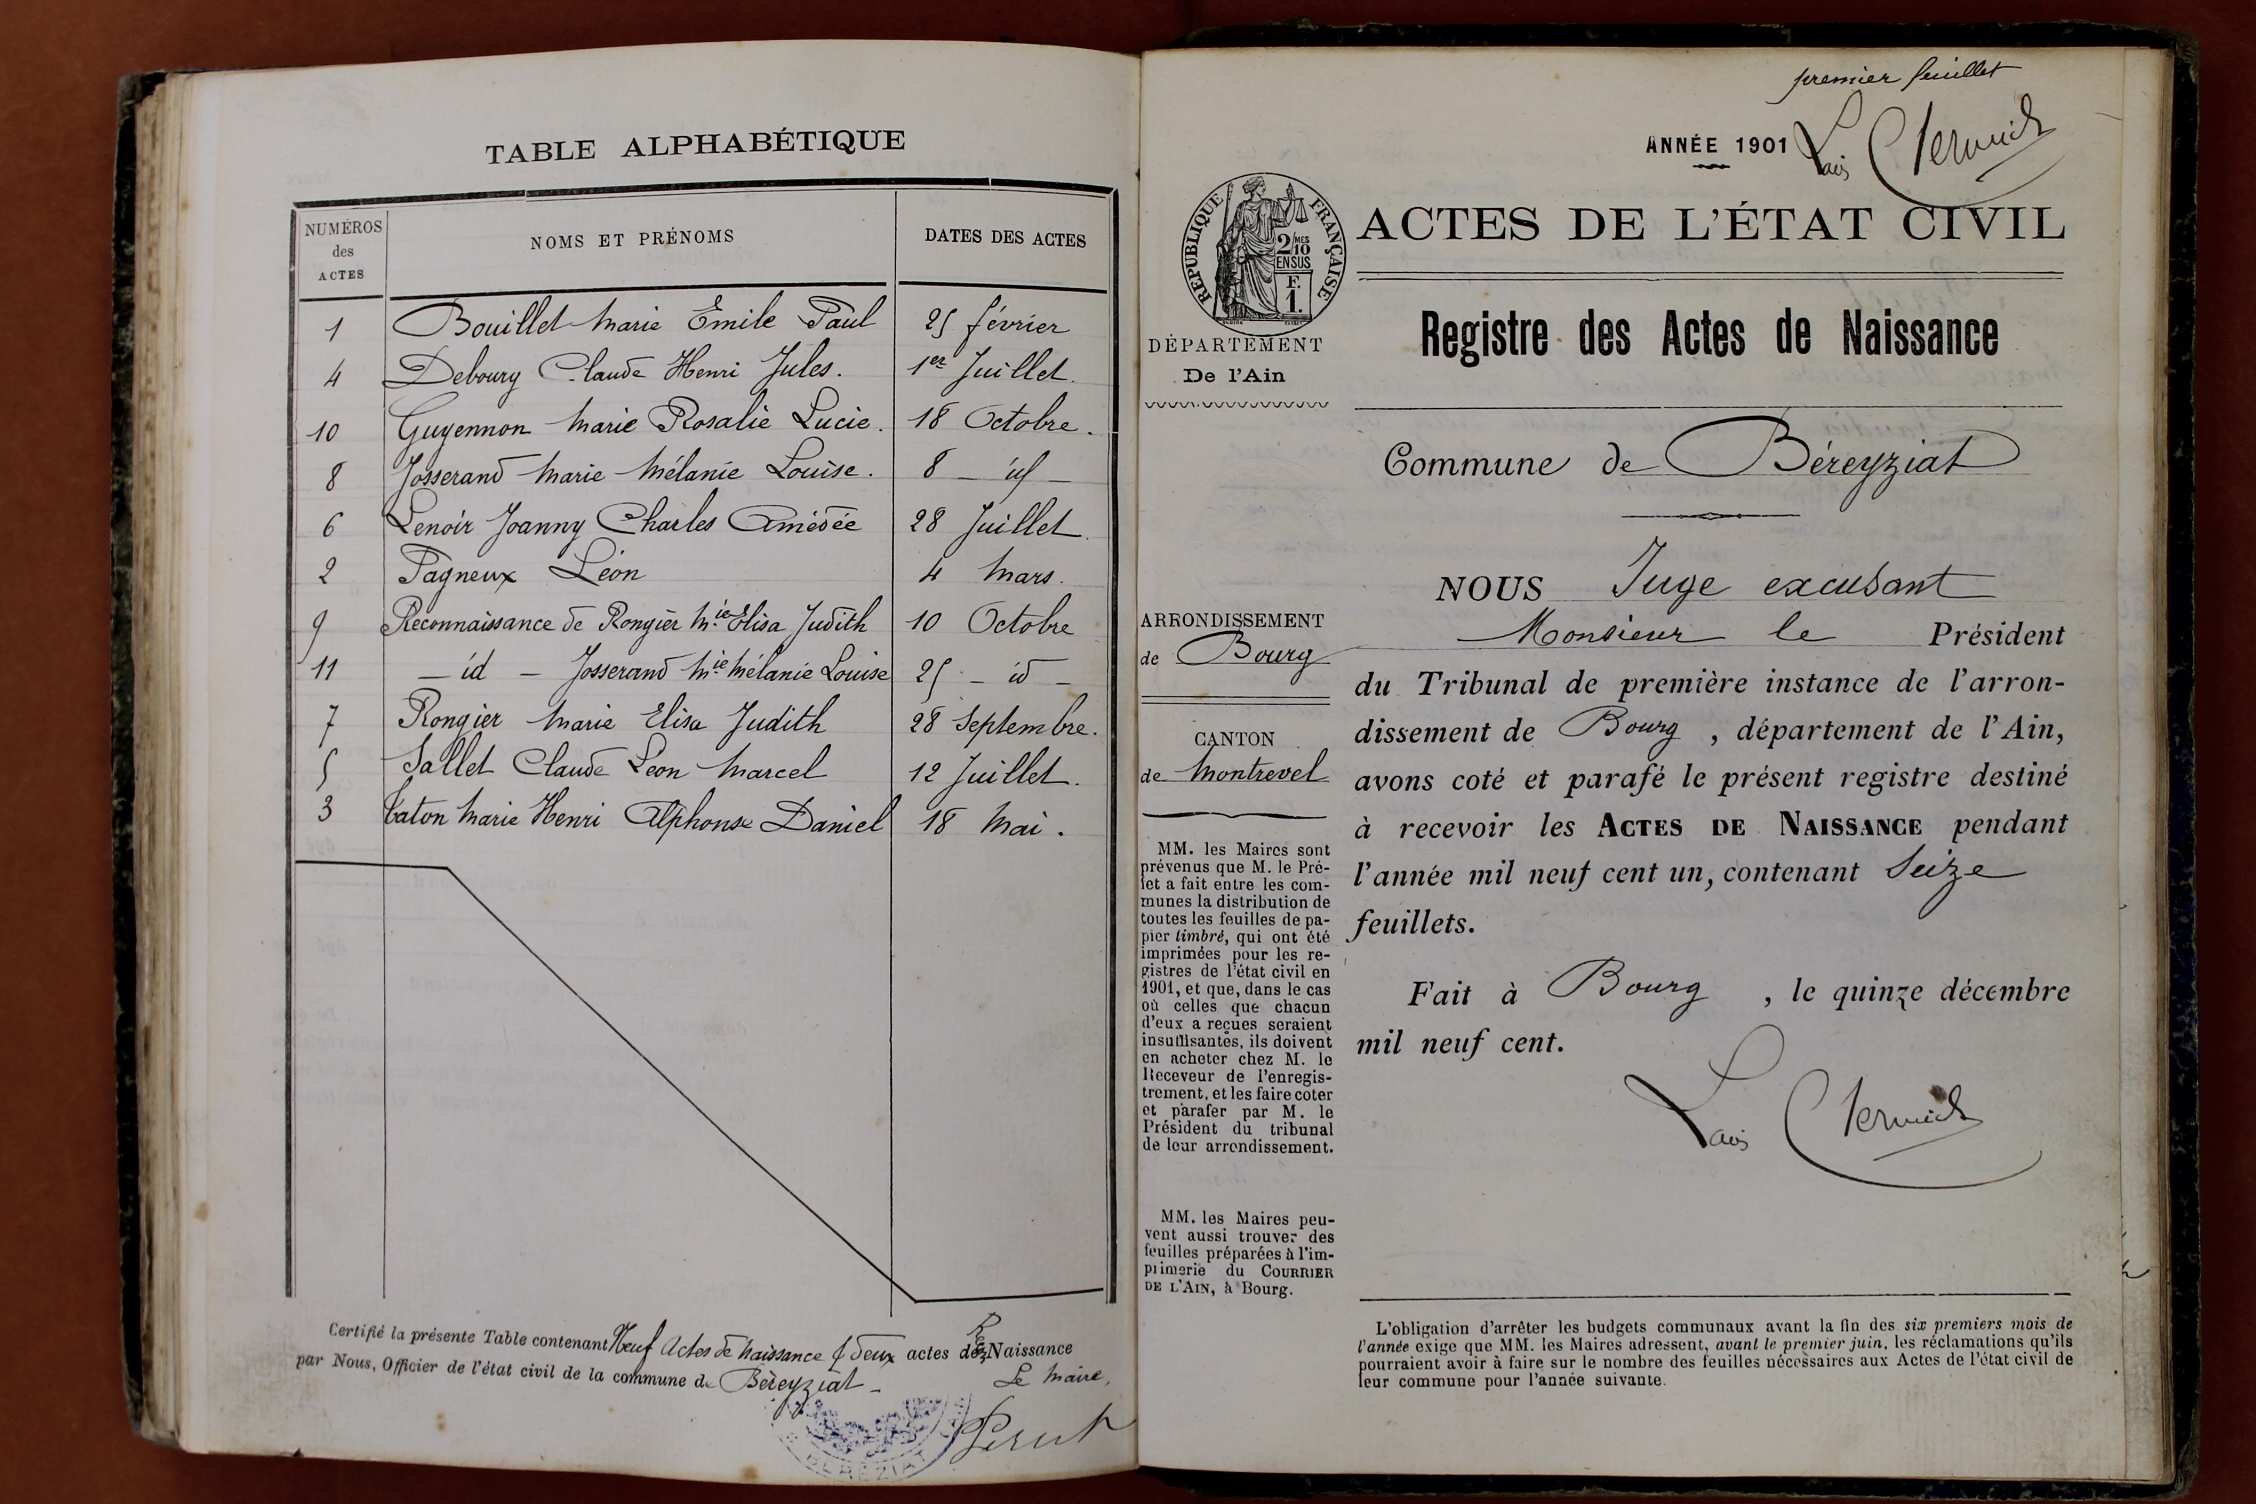 TABLE ALPHABÉTIQUE
NUMÉROS des ACTES
NOMS ET PRÉNOMS
DATES DES ACTES
1 Bouillet Marie Emile Paul 25 février
4 Debourg Claude Henri Jules. 1er Juillet.
10 Guyennon Marie Rosalie Lucie. 18 Octobre.
8 Josserand Marie Mélanie Louise. 8 - id -
6 Lenoir Joanny Charles Amédée 28 Juillet.
2 Pagneux Léon 4 Mars.
9 Reconnaissance de Rongier Mie Elisa Judith 10 Octobre
11 - id - Josserand Mie Mélanie Louise 25 - id -
7 Rongier Marie Elisa Judith 28 Septembre.
5 Sallet Claude Leon Marcel 12 Juillet.
3 Vaton Marie Henri Alphonse Daniel 18 Mai.
Certifié la présente Table contenant Neuf Actes de Naissance & deux actes de Naissance
par Nous, Officier de l'état civil de la commune de Béreyziat -
Le Maire,
BÉRÉZIAT
premier feuillet
ANNÉE 1901
RÉPUBLIQUE FRANÇAISE
2/10 MES
EN SUS
F.
1.
DÉPARTEMENT
De l'Ain
ACTES DE L'ÉTAT CIVIL
Registre des Actes de Naissance
Commune de Béreyziat
ARRONDISSEMENT
de Bourg
CANTON
de Montrevel
MM. les Maires sont
prévenus que M. le Pré-
fet a fait entre les com-
munes la distribution de
toutes les feuilles de pa-
pier timbré, qui ont été
imprimées pour les re-
gistres de l'état civil en
1901, et que, dans le cas
où celles que chacun
d'eux a reçues seraient
insuffisantes, ils doivent
en acheter chez M. le
Receveur de l'enregis-
trement, et les faire coter
et parafer par M. le
Président du tribunal
de leur arrondissement.
MM. les Maires peu-
vent aussi trouver des
feuilles préparées à l'im-
primerie du COURRIER
DE L'AIN, à Bourg.
NOUS Juge excusant
Monsieur le Président
du Tribunal de première instance de l'arron-
dissement de Bourg, département de l'Ain,
avons coté et parafé le présent registre destiné
à recevoir les ACTES DE NAISSANCE pendant
l'année mil neuf cent un, contenant Seize
feuillets.
Fait à Bourg, le quinze décembre
mil neuf cent.
L'obligation d'arrêter les budgets communaux avant la fin des six premiers mois de
l'année exige que MM. les Maires adressent, avant le premier juin, les réclamations qu'ils
pourraient avoir à faire sur le nombre des feuilles nécessaires aux Actes de l'état civil de
leur commune pour l'année suivante.